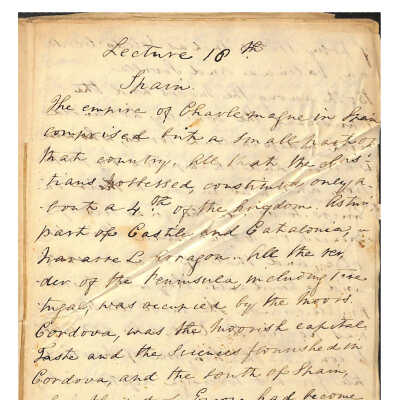 Lecture 18th
Spain.
The empire of Charlemagne in Spain
comprised but a small part of
that country. All that the chris-
tians possessed, constituted only a-
bout a 4th of the kingdom. Astur
part of Castile and Catalonia,
Navarre & Aragon. All the res-
der of the Peninsula, including Por-
tugal, was occupied by the Moors.
Cordova, was the Moorish capital.
Taste and the Sciences flourished in
Cordova, and the south of Spain,
of Europe had become